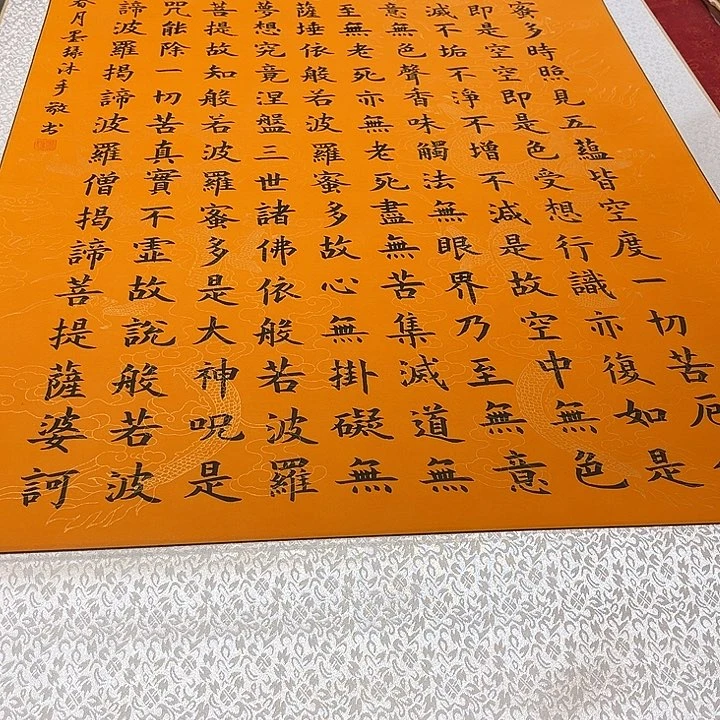 蜜多時照見五蘊皆空度一切苦厄
即是空空即是色受想行識亦復如是
滅不垢不淨不增不減是故空中無色
意無色聲香味觸法無眼界乃至無意
至無老死亦無老死盡無苦集滅道無
薩埵依般若波羅蜜多故心無掛礙無
夢想究竟涅盤三世諸佛依般若波羅
菩提故知般若波羅蜜多是大神呪是
咒能除一切苦真實不虛故說般若波
諦波羅揭諦波羅僧揭諦菩提薩婆訶
月墨緣沐手敬书